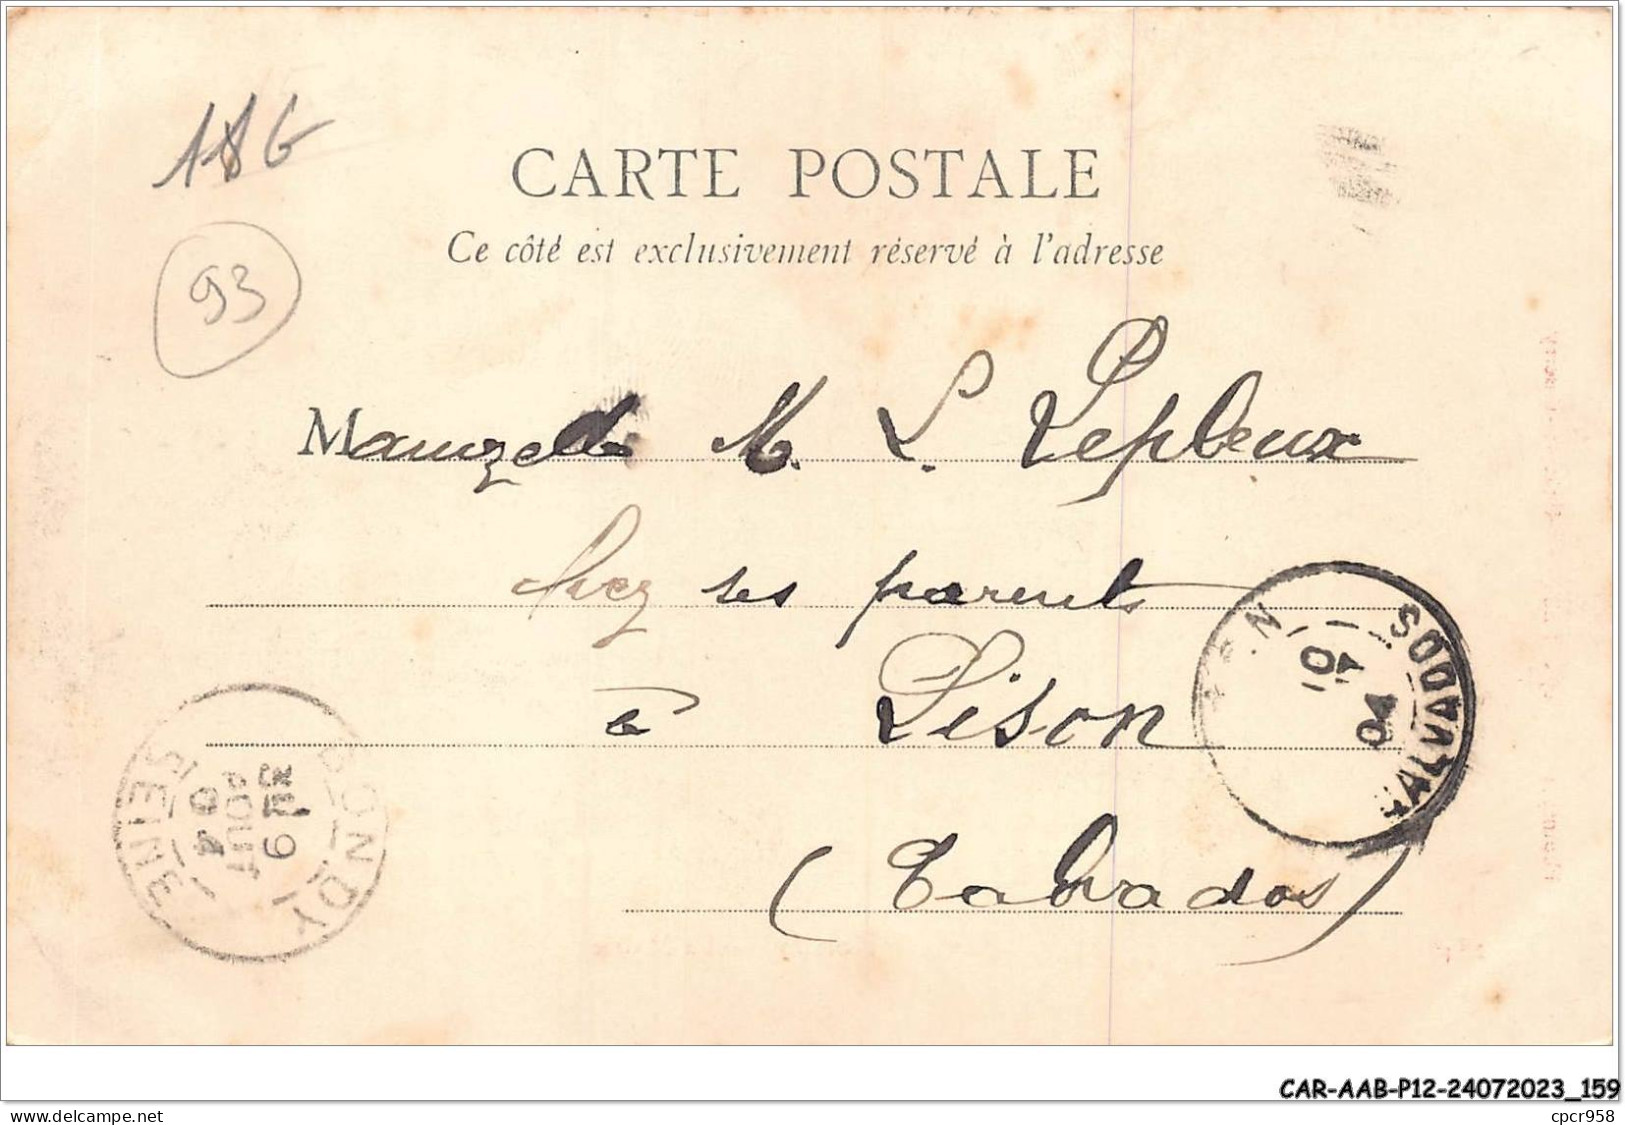 186
CARTE POSTALE
Ce côté est exclusivement réservé à l'adresse
93
Mamzelle M. L. Lepleux
chez ses parents
à Lison
(Calvados)
BONDY
3E
9
AOUT
04
SEINE
CALVADOS
10
04
CAR-AAB-P12-24072023_159
cpcr958